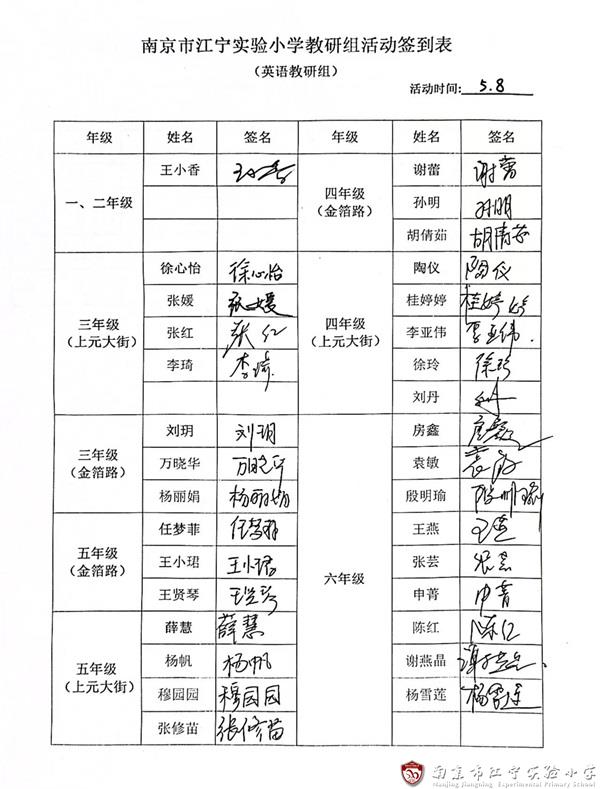 南京市江宁实验小学教研组活动签到表
（英语教研组）
活动时间: 5.8
年级 姓名 签名 年级 姓名 签名
一、二年级 王小香
四年级（金箔路） 谢蕾 谢蕾
孙明 孙明
胡倩茹 胡倩茹
三年级（上元大街） 徐心怡 徐心怡
张媛 张媛
张红 张红
李琦 李琦
四年级（上元大街） 陶仪 陶仪
桂婷婷 桂婷婷
李亚伟 李亚伟
徐玲 徐玲
刘丹
三年级（金箔路） 刘玥 刘玥
万晓华 万晓华
杨丽娟 杨丽娟
五年级（金箔路） 任梦菲 任梦菲
王小珺 王小珺
王贤琴 王贤琴
五年级（上元大街） 薛慧 薛慧
杨帆 杨帆
穆园园 穆园园
张修苗 张修苗
六年级 房鑫
袁敏 袁敏
殷明瑜 殷明瑜
王燕
张芸 张芸
申菁 申菁
陈红 陈红
谢燕晶
杨雪莲 杨雪莲
南京市江宁实验小学
Nanjing Jiangning Experimental Primary School